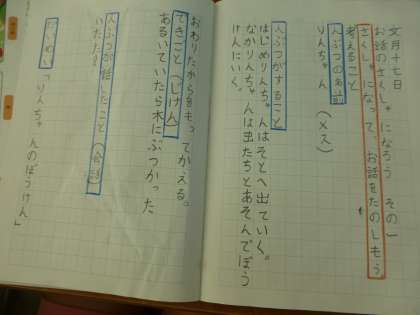 文月十七日
お話のさくしゃになろう その一
さくしゃになって、お話をたのしもう。
考えること
人ぶつの名前
りんちゃん (メス)
人ぶつがすること
はじめりんちゃんはそとへ出ていく。
なかりんちゃんは虫たちとあそんでぼう
けんにいく。
おわりたからをもってかえる。
できごと(じけん)
あるいていたら木にぶつかった
人ぶつが話したこと(会話)
いたたた
だいめい「りんちゃんのぼうけん」